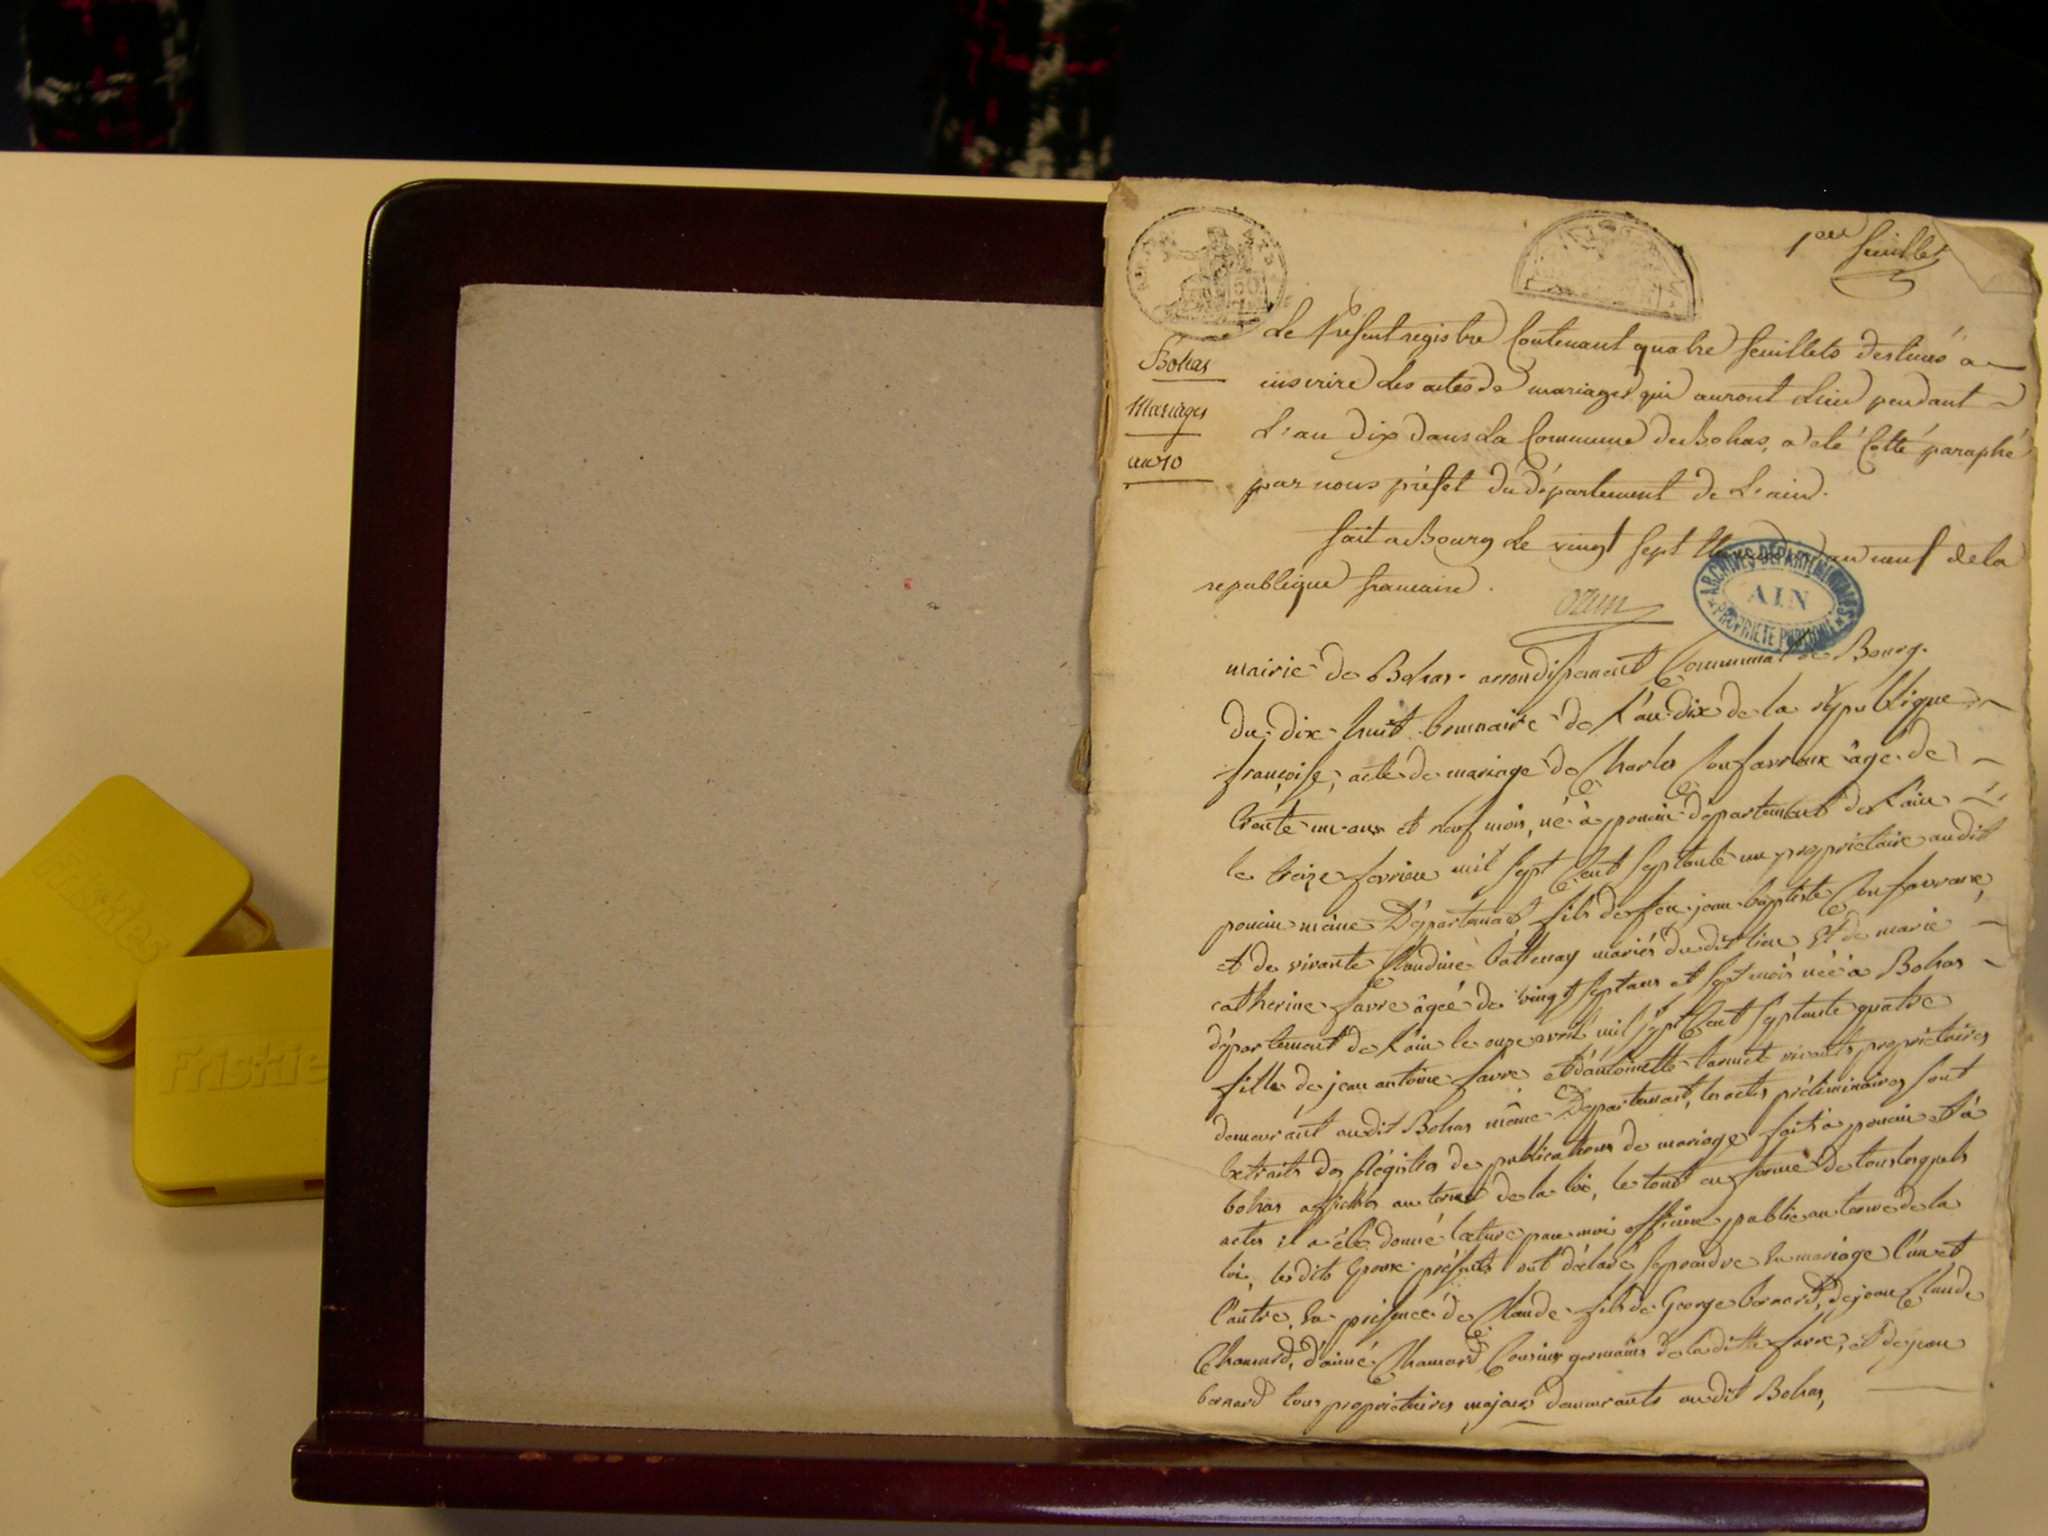 1er feuillet
Bohas
Mariages
an 10
Le présent registre Contenant quatre feuillets destinés a
inscrire Les actes de mariages qui auront Lieu pendant
L'an dix dans La Commune de Bohas, a été Cotté paraphé
par nous préfet du département de L'ain.
fait a Bourg Le vingt sept an neuf de la
republique francaise.
ozun
ARCHIVES DÉPARTEMENTALES
AIN
PROPRIÉTÉ PUBLIQUE
mairie de Bohas. arrondissement Communal de Bourg.
du dix huit brumaire de L'an dix de la République
françoise, acte de mariage de Charles Confavreux âgé de
trente un ans et neuf mois, né à poncin département de L'ain
le treize fevrier mil sept Cent septante un proprietaire audit
poncin même Département fils de feu jean baptiste Confavreux,
et de vivante Claudine mariés du dit lieu Et de marie
catherine favre âgée de vingt sept ans et sept mois née à Bohas
département de L'ain le onze avril mil sept Cent septante quatre
fille de jean antoine favre et d'antoinette vivants proprietaires
demeurant audit Bohas même Département, les actes préliminaires sont
Extraits des Régistres de publications de mariage faits a poncin et à
bohas affichés au terme de la loi, le tout en forme de tous lesquels
actes il a été donné lecture par moi officier public au terme de la
loi, les dits Epoux présents ont déclaré se prendre En mariage l'un et
l'autre, En présence de Claude fils de George bernard, de jean Claude
Chanard, d'aimé Chanard Cousins germains de la ditte favre, et de jean
bernard tous proprietaires majeurs demeurants audit Bohas,
Friskies
Friskie